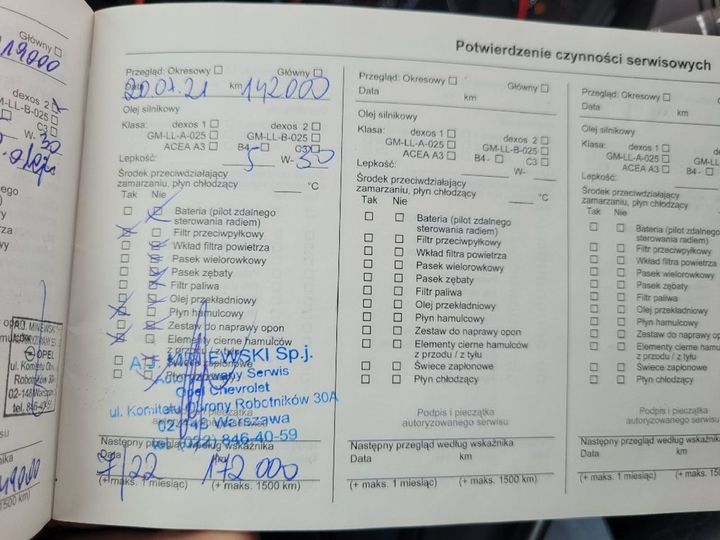 Potwierdzenie czynności serwisowych
Główny ☐
119000
dexos 2
GM-LL-B-025 ☐
C3 ☐
W-30
°C
opo
OPEL
ul. Komitetu Ob
Robotników 30
02-148
tel. 846-40-
Przegląd: Okresowy ☐ Główny ☐
Data 20.07.21 km 142000
Olej silnikowy
Klasa: dexos 1 ☐ dexos 2 ☐
GM-LL-A-025 ☐ GM-LL-B-025 ☐
ACEA A3 ☐ B4 ☐ C3 ☐
Lepkość: 5 W- 30
Środek przeciwdziałający
zamarzaniu, płyn chłodzący °C
Tak Nie
Bateria (pilot zdalnego
sterowania radiem)
Filtr przeciwpyłkowy
Wkład filtra powietrza
Pasek wielorowkowy
Pasek zębaty
Filtr paliwa
Olej przekładniowy
Płyn hamulcowy
Zestaw do naprawy opon
Elementy cierne hamulców
A.J. MINIEWSKI Sp.j.
Autoryzowany Serwis
Opel Chevrolet
ul. Komitetu Obrony Robotników 30A
02-148 Warszawa
tel. (022) 846-40-59
Następny przegląd według wskaźnika
Data km
7/22 172 000
(+ maks. 1 miesiąc) (+ maks. 1500 km)
Przegląd: Okresowy ☐ Główny ☐
Data km
Olej silnikowy
Klasa: dexos 1 ☐ dexos 2 ☐
GM-LL-A-025 ☐ GM-LL-B-025 ☐
ACEA A3 ☐ B4 - ☐ C3 ☐
Lepkość: W-
Środek przeciwdziałający
zamarzaniu, płyn chłodzący °C
Tak Nie
☐ ☐ Bateria (pilot zdalnego
sterowania radiem)
☐ ☐ Filtr przeciwpyłkowy
☐ ☐ Wkład filtra powietrza
☐ ☐ Pasek wielorowkowy
☐ ☐ Pasek zębaty
☐ ☐ Filtr paliwa
☐ ☐ Olej przekładniowy
☐ ☐ Płyn hamulcowy
☐ ☐ Zestaw do naprawy opon
☐ ☐ Elementy cierne hamulców
z przodu / z tyłu
☐ ☐ Świece zapłonowe
☐ ☐ Płyn chłodzący
Podpis i pieczątka
autoryzowanego serwisu
Następny przegląd według wskaźnika
Data km
(+ maks. 1 miesiąc) (+ maks. 1500 km)
Przegląd: Okresowy ☐
Data km
Olej silnikowy
Klasa: dexos 1 ☐
GM-LL-A-025 ☐
ACEA A3 ☐ B4 - ☐
Lepkość:
Środek przeciwdziałający
zamarzaniu, płyn chłodzący
Tak Nie
☐ ☐ Bateria (pilot zdalnego
sterowania radiem)
☐ ☐ Filtr przeciwpyłkowy
☐ ☐ Wkład filtra powietrza
☐ ☐ Pasek wielorowkowy
☐ ☐ Pasek zębaty
☐ ☐ Filtr paliwa
☐ ☐ Olej przekładniowy
☐ ☐ Płyn hamulcowy
☐ ☐ Zestaw do naprawy opon
☐ ☐ Elementy cierne hamulców
z przodu / z tyłu
☐ ☐ Świece zapłonowe
☐ ☐ Płyn chłodzący
Podpis i pieczątka
autoryzowanego serwisu
Następny przegląd według wskaźnika
Data km
(+ maks. 1 miesiąc) (+ maks. 1500 km)